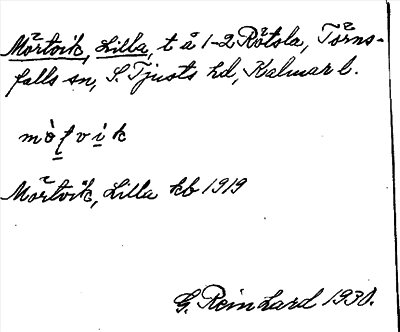 Mörtvik, Lilla, t å 1-2 Rötsla, Törns-
falls sn, S. Tjusts hd, Kalmar l.
Mörtvik, Lilla kb 1919
G. Reinhard 1930.